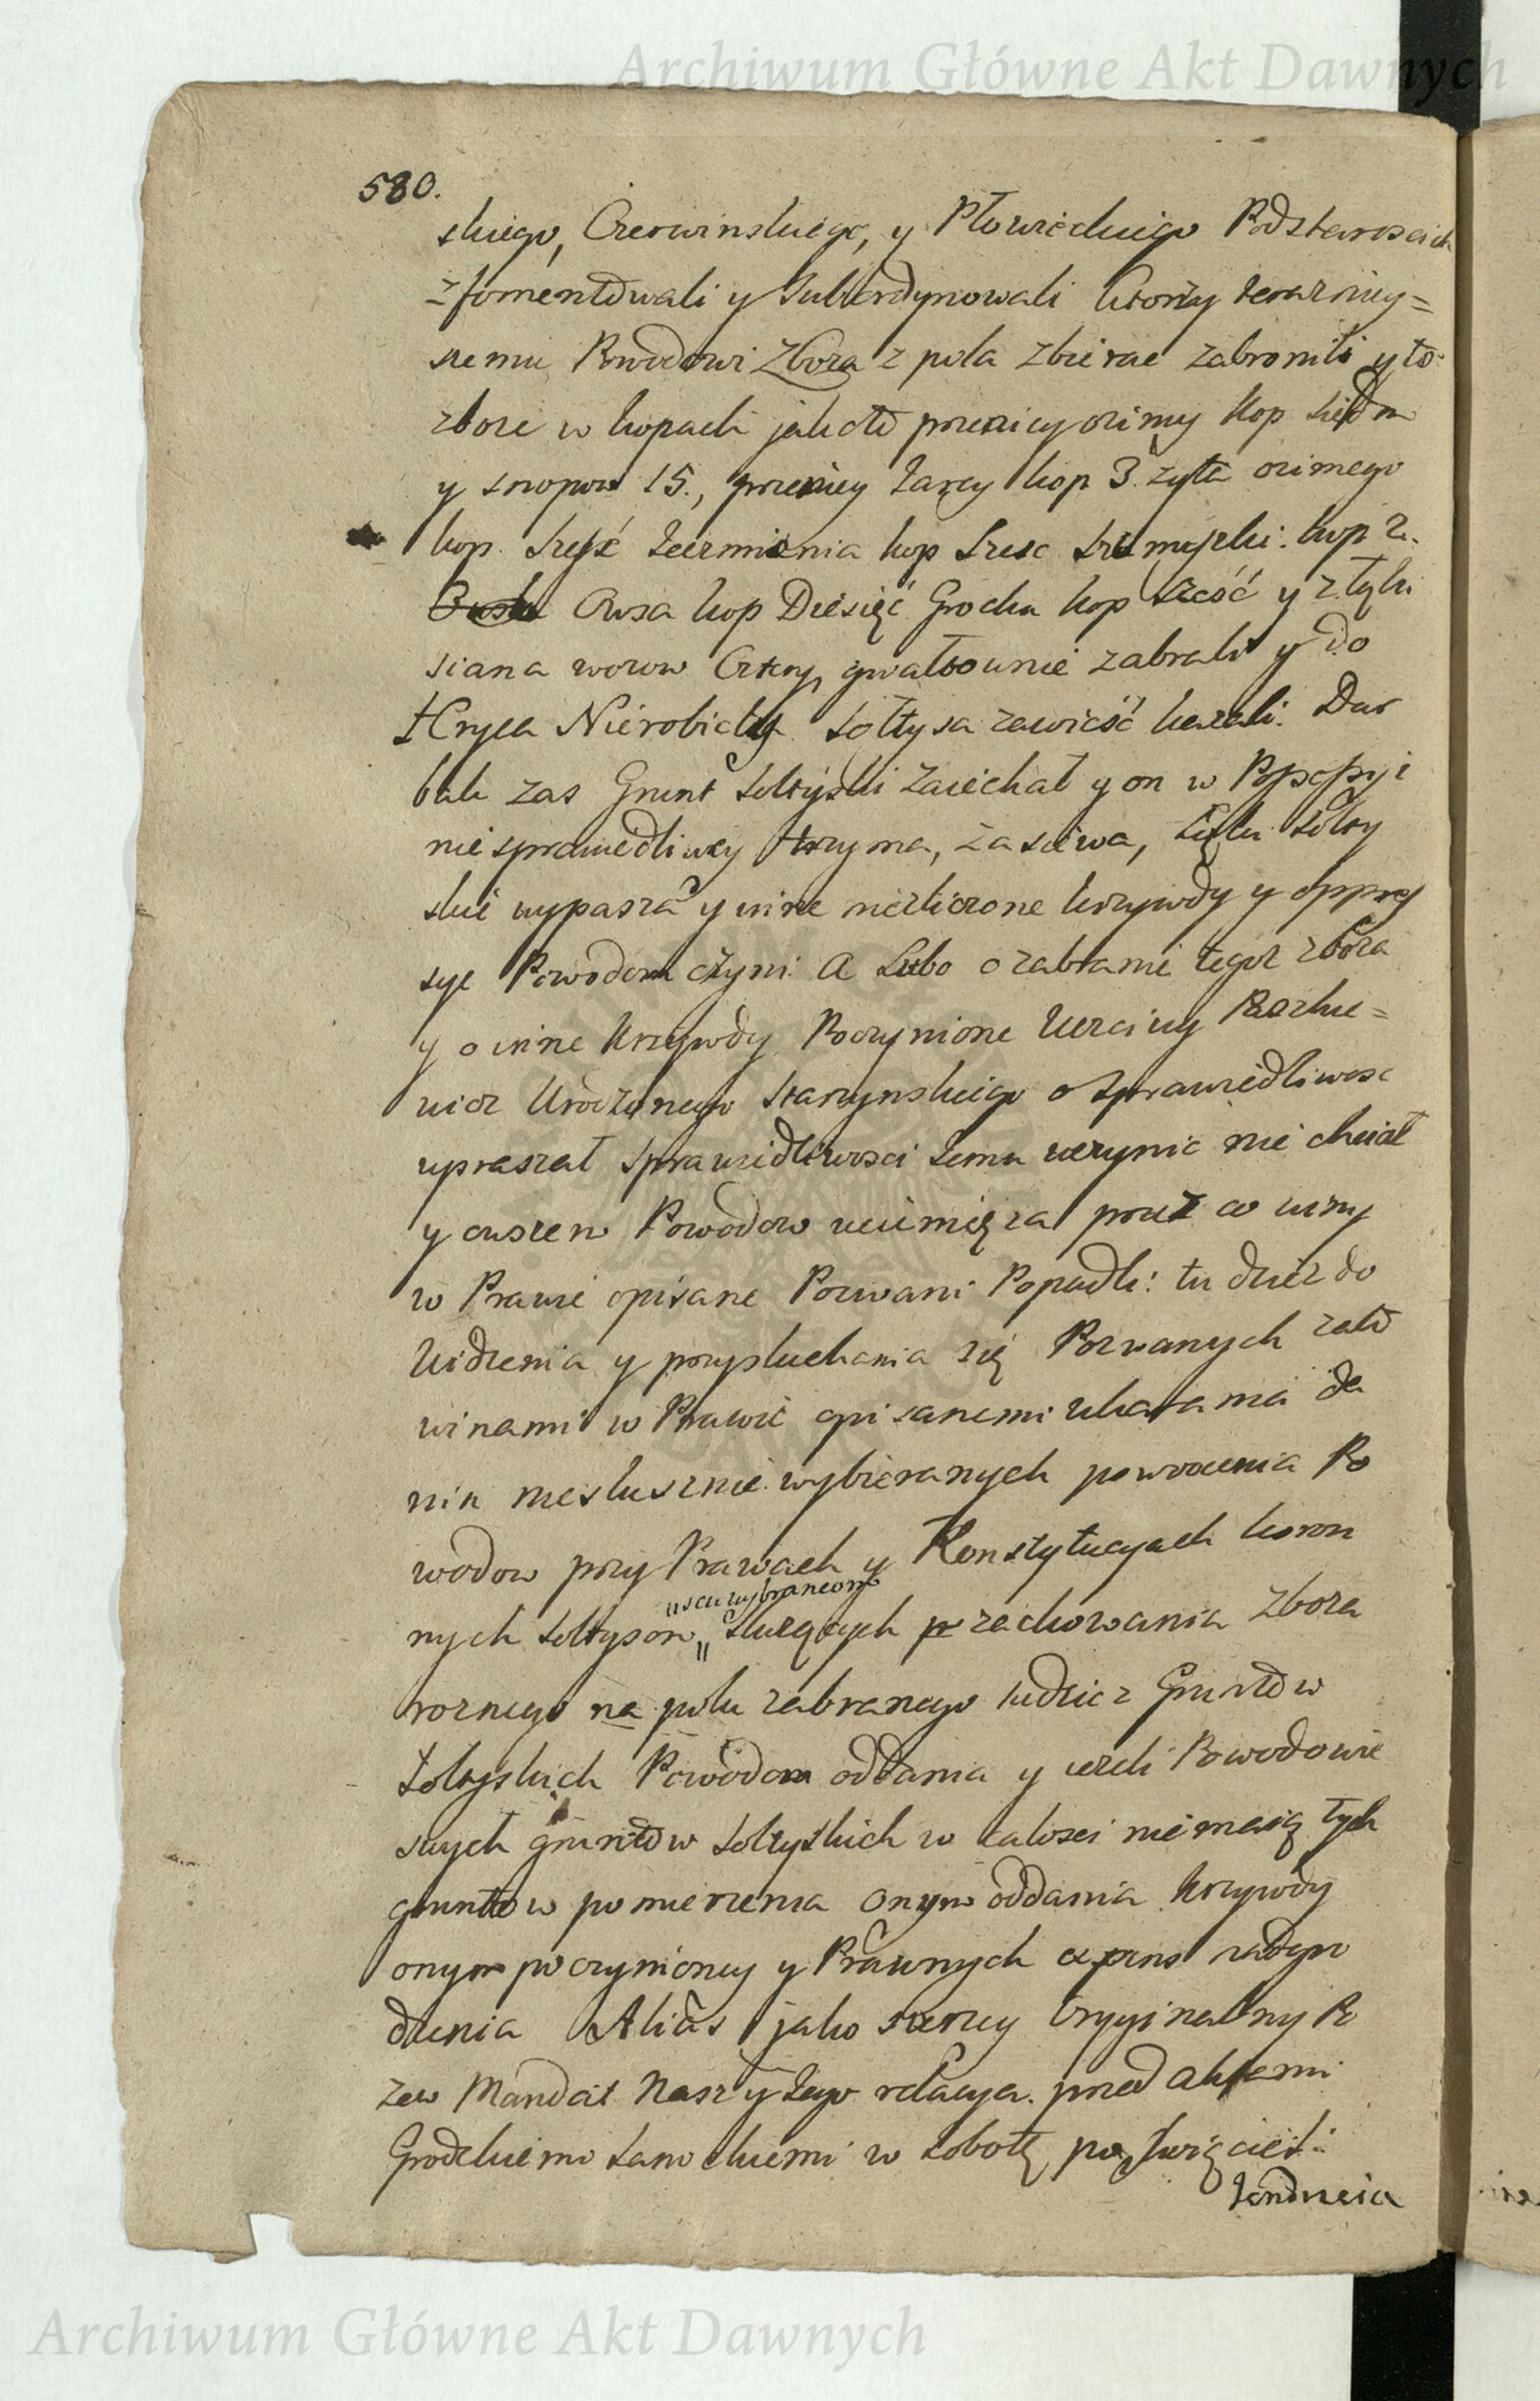 Archiwum Główne Akt Dawnych
580.
skiego, Czerwinskiego, y Płowieckiego Podstarosciich
zfomentowali y Subordynowali ktorzy terazniey=
szemu Powodowi Zboza z pola zbierac zabronili y to
zboze w kopach jakoto pszenicy ozimy kop siedm
y snopow 15., pszenicy Jarey kop 3. zyta ozimego
kop szesć Jeczmienia kop szesc kop 2.
Owsa kop Diesięć Grochu kop sześć y z łąki
siana wozow Cztery, gwałtownie zabrali y do
Hryca Nierobichy Sołtysa zawieść kazali. Dar
bak zas Grunt Sołtyski zaiechał y on w Possessyi
niesprawiedliwey trzyma, zasiewa, Łąki Sołty
skie wypasza y inne niezliczone krzywdy y oppres
sye Powodom czyni A Lubo o zabranie tegoz zboza
y o inne Krzywdy Poczynione Uczciwy Raszke=
wicz Urodzonego Starzynskiego o Sprawiedliwosc
upraszał Sprawiedliwosci Jemu uczynic nie chciał
y owszem Powodow uciemięza przez co winy
w Prawie opisane Pozwani Popadli: tudziez do
Widzenia y przysłuchania się Pozwanych zato
winami w Prawie opisanemi ukarania da
nin niesłusznie wybieranych powrocenia Po
wodow przy Prawach y Konstytucyach koron
"scu wybrancom
nych Sołtysom" słuzących zachowania Zboza
roznego na polu zabranego tudziez Gruntow
Sołtyskich Powodom oddania y jezeli Powodowie
swych gruntow Sołtyskich w całosci niemaią tych
gruntow pomierzenia onym oddania krzywdy
onym poczynioney y Prawnych expens nadgro
dzenia Alias jako szerzey Oryginalny Po
zew Mandat Nasz y Jego relacya przed Aktami
Grodzkiemi Sanockiemi w Sobotę po Swięcie S:
Jendrzeia
Archiwum Główne Akt Dawnych